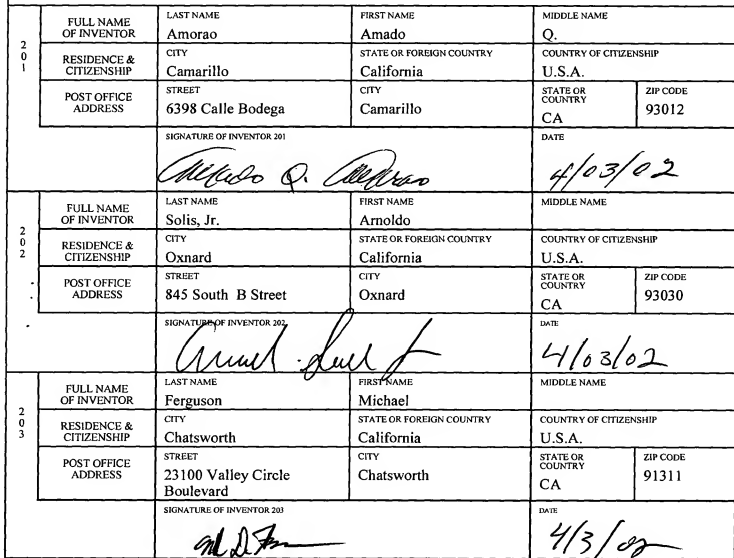 201
FULL NAME OF INVENTOR
LAST NAME
Amorao
FIRST NAME
Amado
MIDDLE NAME
Q.
RESIDENCE & CITIZENSHIP
CITY
Camarillo
STATE OR FOREIGN COUNTRY
California
COUNTRY OF CITIZENSHIP
U.S.A.
POST OFFICE ADDRESS
STREET
6398 Calle Bodega
CITY
Camarillo
STATE OR COUNTRY
CA
ZIP CODE
93012
SIGNATURE OF INVENTOR 201
Amado Q. Amorao
DATE
4/03/02
202
FULL NAME OF INVENTOR
LAST NAME
Solis, Jr.
FIRST NAME
Arnoldo
MIDDLE NAME
RESIDENCE & CITIZENSHIP
CITY
Oxnard
STATE OR FOREIGN COUNTRY
California
COUNTRY OF CITIZENSHIP
U.S.A.
POST OFFICE ADDRESS
STREET
845 South B Street
CITY
Oxnard
STATE OR COUNTRY
CA
ZIP CODE
93030
SIGNATURE OF INVENTOR 202
DATE
4/03/02
203
FULL NAME OF INVENTOR
LAST NAME
Ferguson
FIRST NAME
Michael
MIDDLE NAME
RESIDENCE & CITIZENSHIP
CITY
Chatsworth
STATE OR FOREIGN COUNTRY
California
COUNTRY OF CITIZENSHIP
U.S.A.
POST OFFICE ADDRESS
STREET
23100 Valley Circle
Boulevard
CITY
Chatsworth
STATE OR COUNTRY
CA
ZIP CODE
91311
SIGNATURE OF INVENTOR 203
DATE
4/3/02